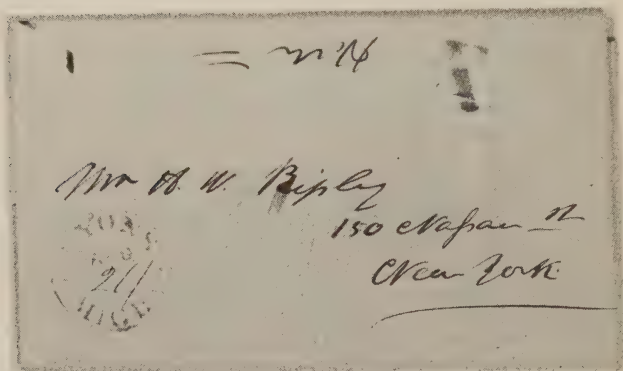 Mr H. W. Ripley
150 Nassau st
New York